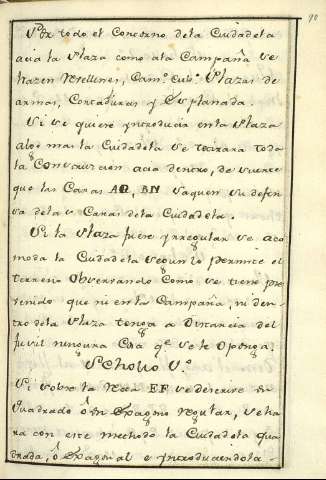 90
Por todo el Concorno dela Ciudadela
acia la Plaza como ala Campaña se
hazen Revellines, Camº cubº Plazas de
armas, Cortaduras y Explanada.
Si se quiere introducir en la Plaza
algo mas la Ciudadela se tirara toda
la Construccion acia dentro, de suerte
que las Caras AQ, BN saquen su defen
sa dela s Caras dela Ciudadela.
Si la Plaza fuere yrregular se aco
moda la Ciudadela segun lo permite el
terreno Observando Como se tiene pre
venido que ni en la Campaña, ni den
tro dela Plaza tenga a Distancia del
fusil ninguna Cosa qe se le Oponga.
Scholio Vº
Si sobre la Recta EF se descrive Un
Quadrado ô Un Exagono Regular, se ha
ra con este methodo la Ciudadela qua
drada, ô Exagonal e yntroduciendola